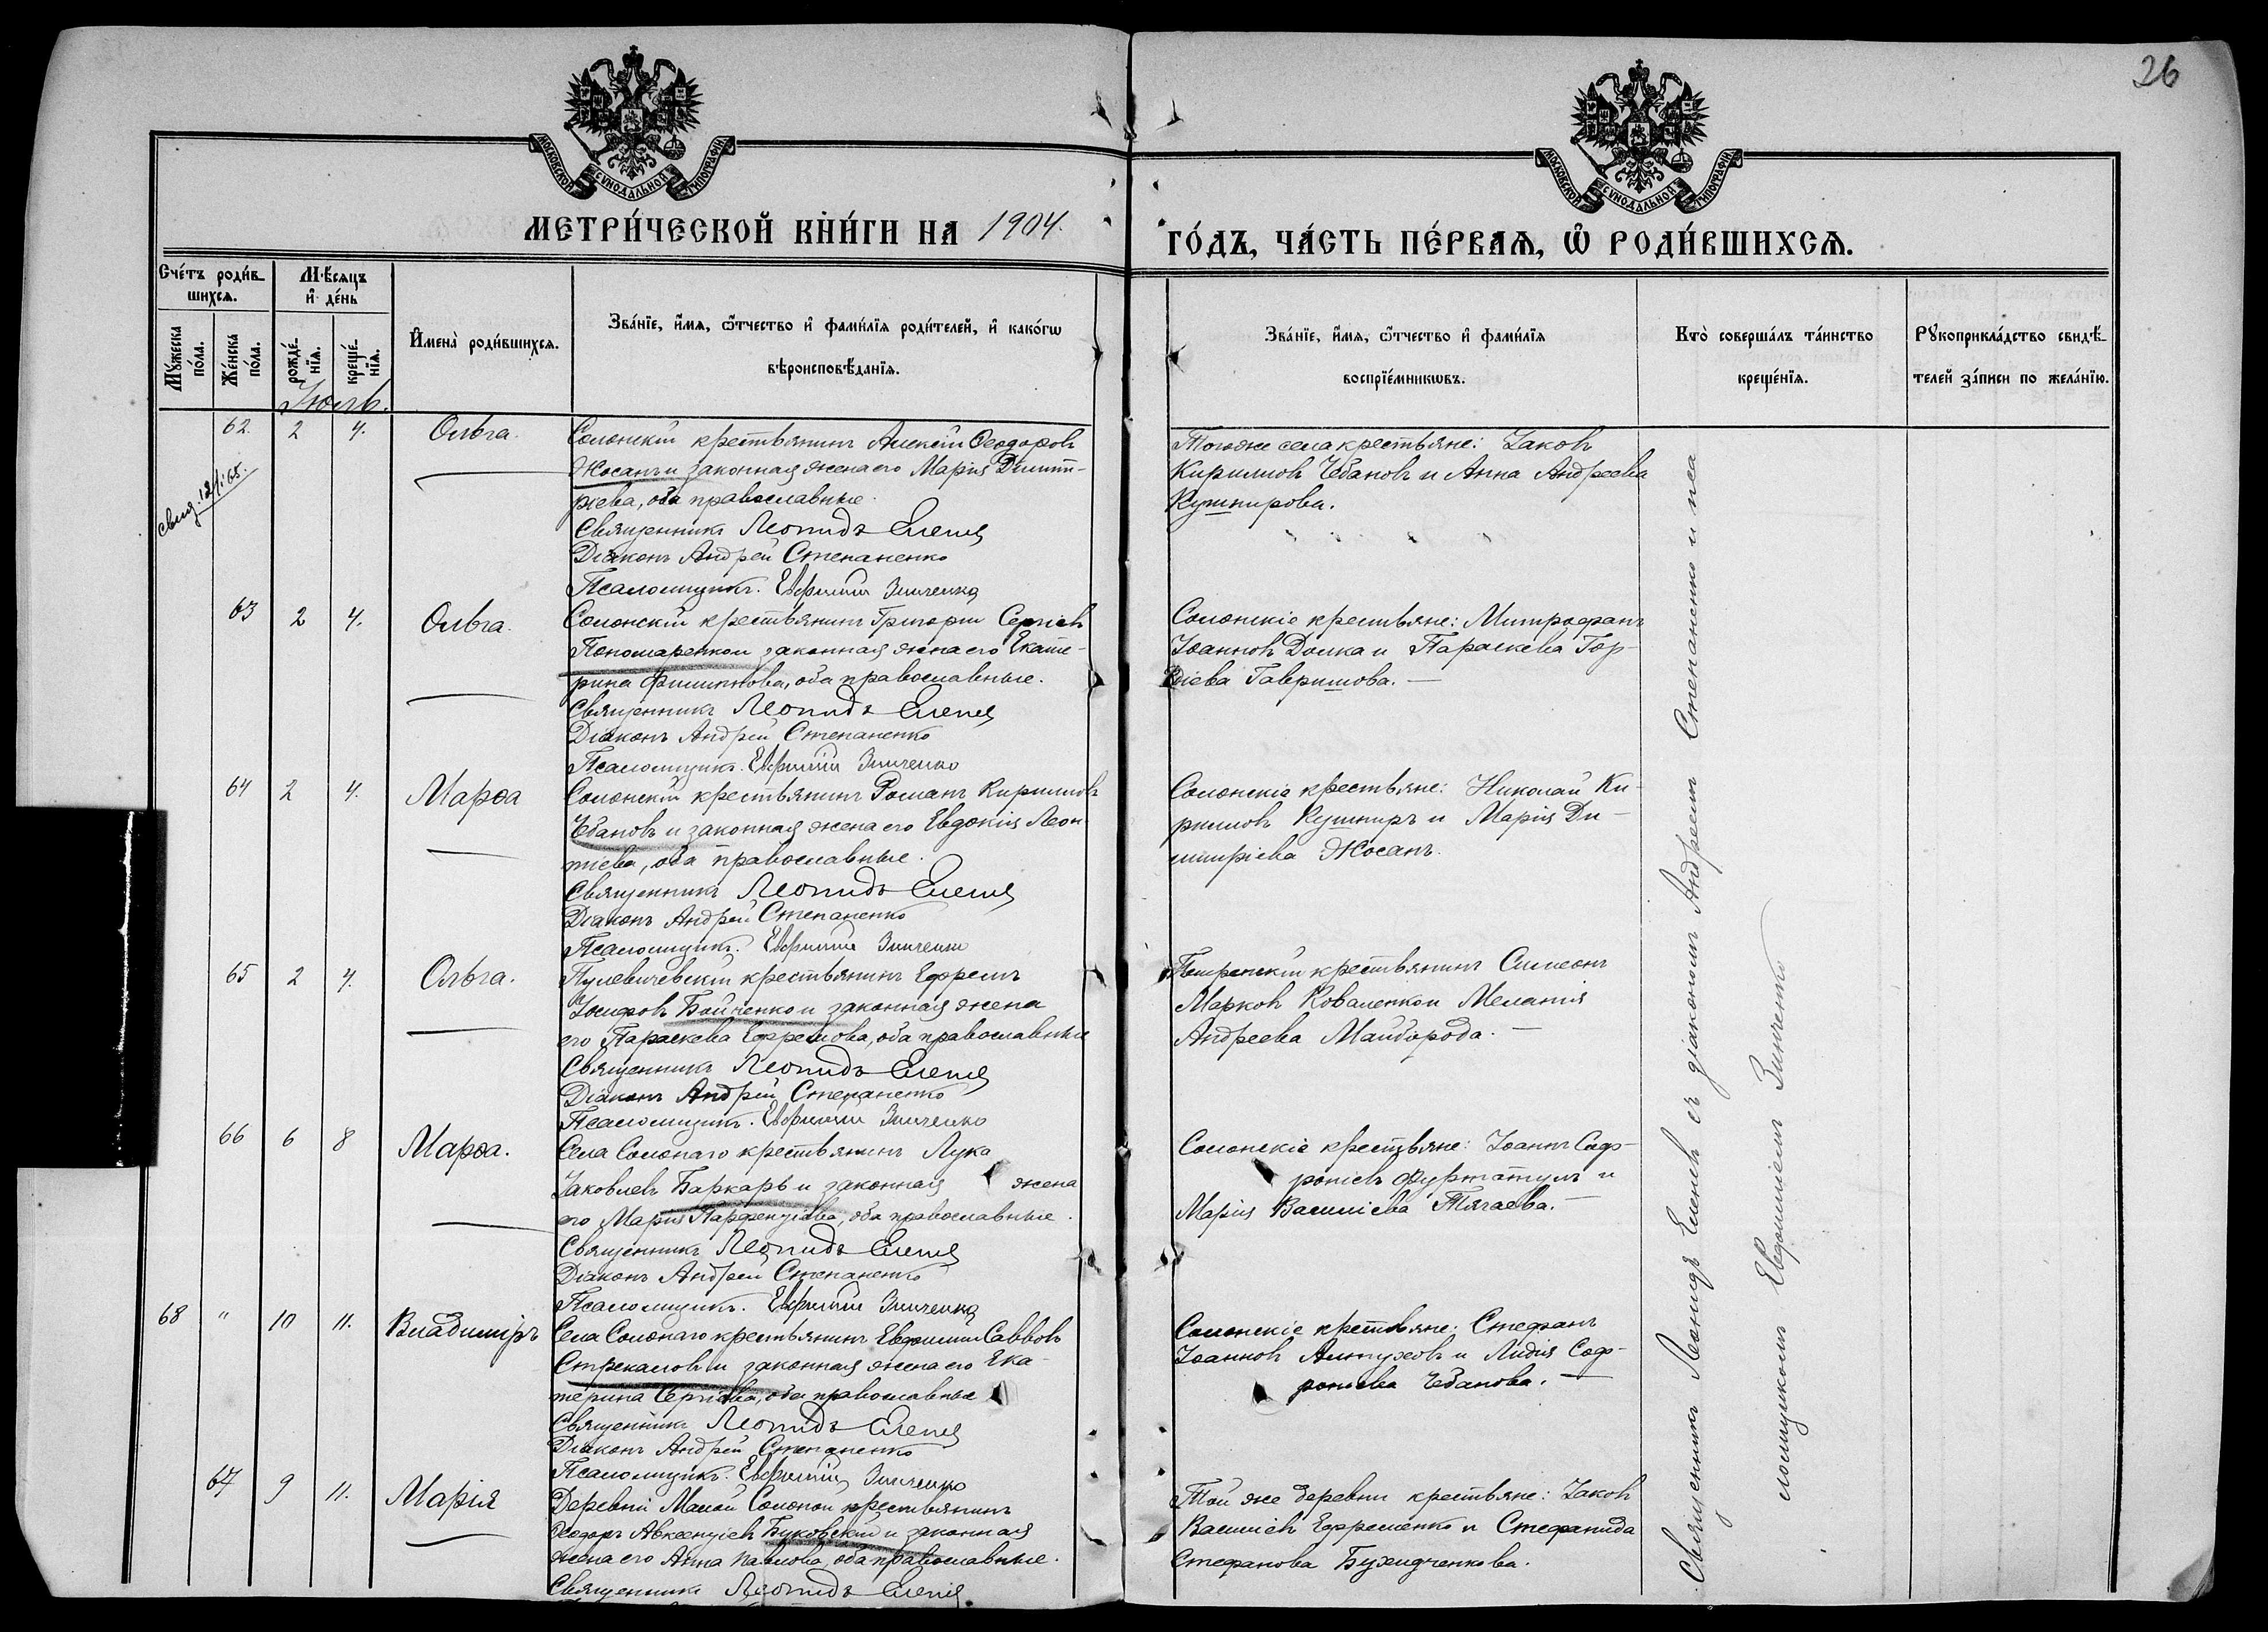 26
МОСКОВСКОЙ СУНОДАЛЬНОЙ ТИПОГРАФІИ
МОСКОВСКОЙ СУНОДАЛЬНОЙ ТИПОГРАФІИ
МЕТРИ́ЧЕСКОЙ КНИ́ГИ НА 1904.
ГО́ДЪ, ЧА́СТЬ ПЕ́РВАѦ, Ѡ҆ РОДИ́ВШИХСѦ.
Сче́тъ роди́вшихсѧ.
Мꙋ́жеска по́ла.
Же́нска по́ла.
Мѣ́сѧцъ и҆ де́нь
рожде́нїѧ.
креще́нїѧ.
Июль.
И҆мена̀ роди́вшихсѧ.
Зва́нїе, и҆́мѧ, ѻ҆́тчество и҆ фами́лїѧ роди́телей, и҆ како́гѡ
вѣроисповѣ́данїѧ.
Зва́нїе, и҆́мѧ, ѻ҆́тчество и҆ фами́лїѧ
воспрїе́мникѡвъ.
Кто̀ соверша́лъ та́инство
креще́нїѧ.
Рꙋкоприкла́дство свидѣ́-
телей за́писи по жела́нїю.
62. 2 4. Ольга.
Солонскій крестьянинъ Алексій Ѳеодоровъ
Носанъ и законная жена его Марія Димит-
ріева, оба православные.
Священникъ Леонидъ Еленев
Діаконъ Андрей Степаненко
Псаломщикъ. Евфимій Зинченко
Тогоже села крестьяне: Іаковъ
Кирилловъ Чебановъ и Анна Андреева
Кушнирова.
63 2 4. Ольга.
Солонскій крестьянинъ Григорій Сергіевъ
Пономаренко и законная жена его Екате-
рина Филиппова, оба православные.
Священникъ Леонидъ Еленев
Діаконъ Андрей Степаненко
Псаломщикъ. Евфимій Зинченко
Солонскіе крестьяне: Митрофанъ
Іоанновъ Долка и Параскева Гор-
діева Гавришова.
64 2 4. Марѳа
Солонскій крестьянинъ Романъ Кирилловъ
Чебановъ и законная жена его Евдокія Леон-
тіева, оба православные.
Священникъ Леонидъ Еленев
Діаконъ Андрей Степаненко
Псаломщикъ. Евфимій Зинченко
Солонскіе крестьяне: Николай Ки-
рилловъ Кушниръ и Марія Ди-
митріева Носанъ.
65 2 4. Ольга.
Пулевичевскій крестьянинъ Ефремъ
Іосифовъ Бойченко и законная жена
его Параскева Ефремова, оба православные
Священникъ Леонидъ Еленев
Діаконъ Андрей Степаненко
Псаломщикъ. Евфимій Зинченко
крестьянинъ Симеонъ
Марковъ Коваленко и Меланія
Андреева Майборода.
66 6 8 Марѳа.
Села Солонаго крестьянинъ Лука
Іаковлевъ Баркарь и законная жена
его Марія Парфентіева, оба православные.
Священникъ Леонидъ Еленев
Діаконъ Андрей Степаненко
Псаломщикъ. Евфимій Зинченко
Солонскіе крестьяне: Іоаннъ Соф-
роніевъ и
Марія Василіева Тягаева.
68 " 10 11. Владиміръ
Села Солонаго крестьянинъ Евфимій Саввовъ
Стрекаловъ и законная жена его Ека-
терина Сергіева, оба православные
Священникъ Леонидъ Еленев
Діаконъ Андрей Степаненко
Псаломщикъ. Евфимій Зинченко
Солонскіе крестьяне: Стефанъ
Іоанновъ Алтуховъ и Лидія Соф-
роніева Чебанова.
67 9 11. Марія
Деревни Малой Солоной крестьянинъ
Ѳеодоръ Авксентіевъ Буковскій и законная
жена его Анна Павлова, оба православные.
Священникъ Леонидъ Еленев
Той же деревни крестьяне: Іаковъ
Василіевъ Ефременко и Стефанида
Стефанова
Священникъ Леонидъ Еленевъ съ діакономъ Андреемъ Степаненко и пса
ломщикомъ Евфиміемъ Зинченко